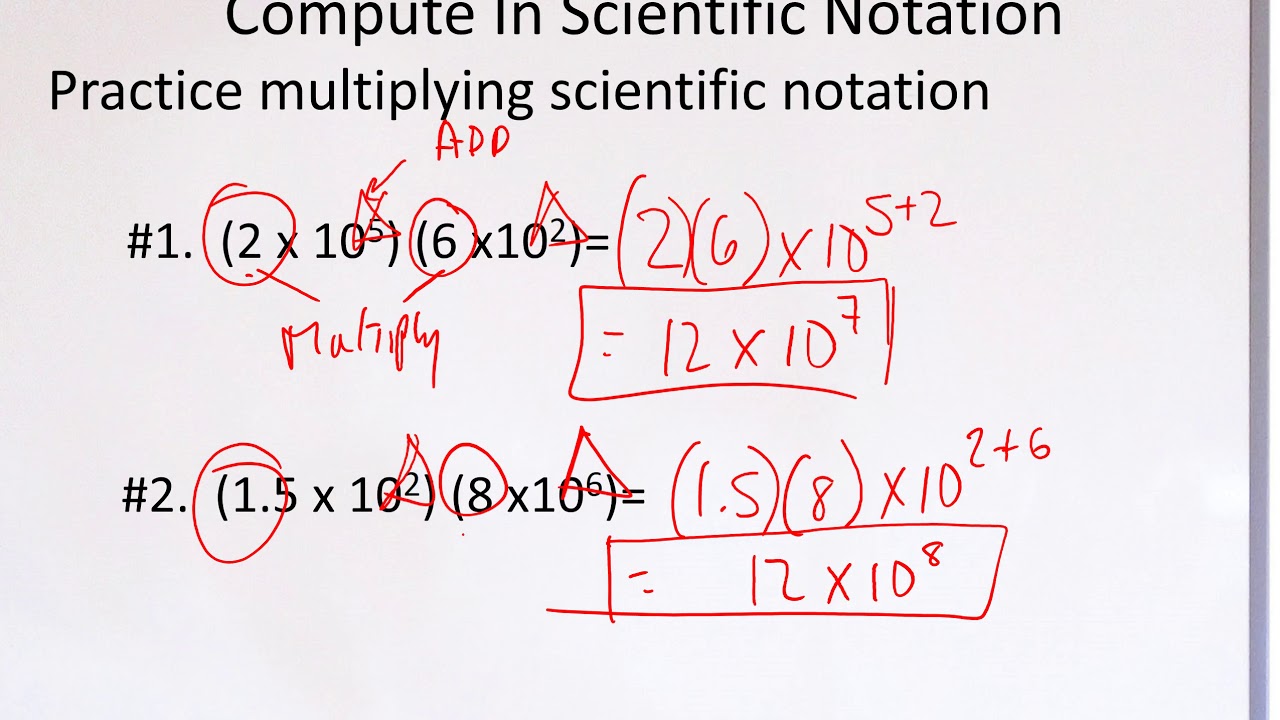 Compute In Scientific Notation
Practice multiplying scientific notation
ADD
#1. (2 x 10⁵) (6 x10²)= (2)(6) x 10⁵⁺²
Multiply
= 12 x 10⁷
#2. (1.5 x 10²) (8 x10⁶)= (1.5)(8) x 10²⁺⁶
= 12 x 10⁸